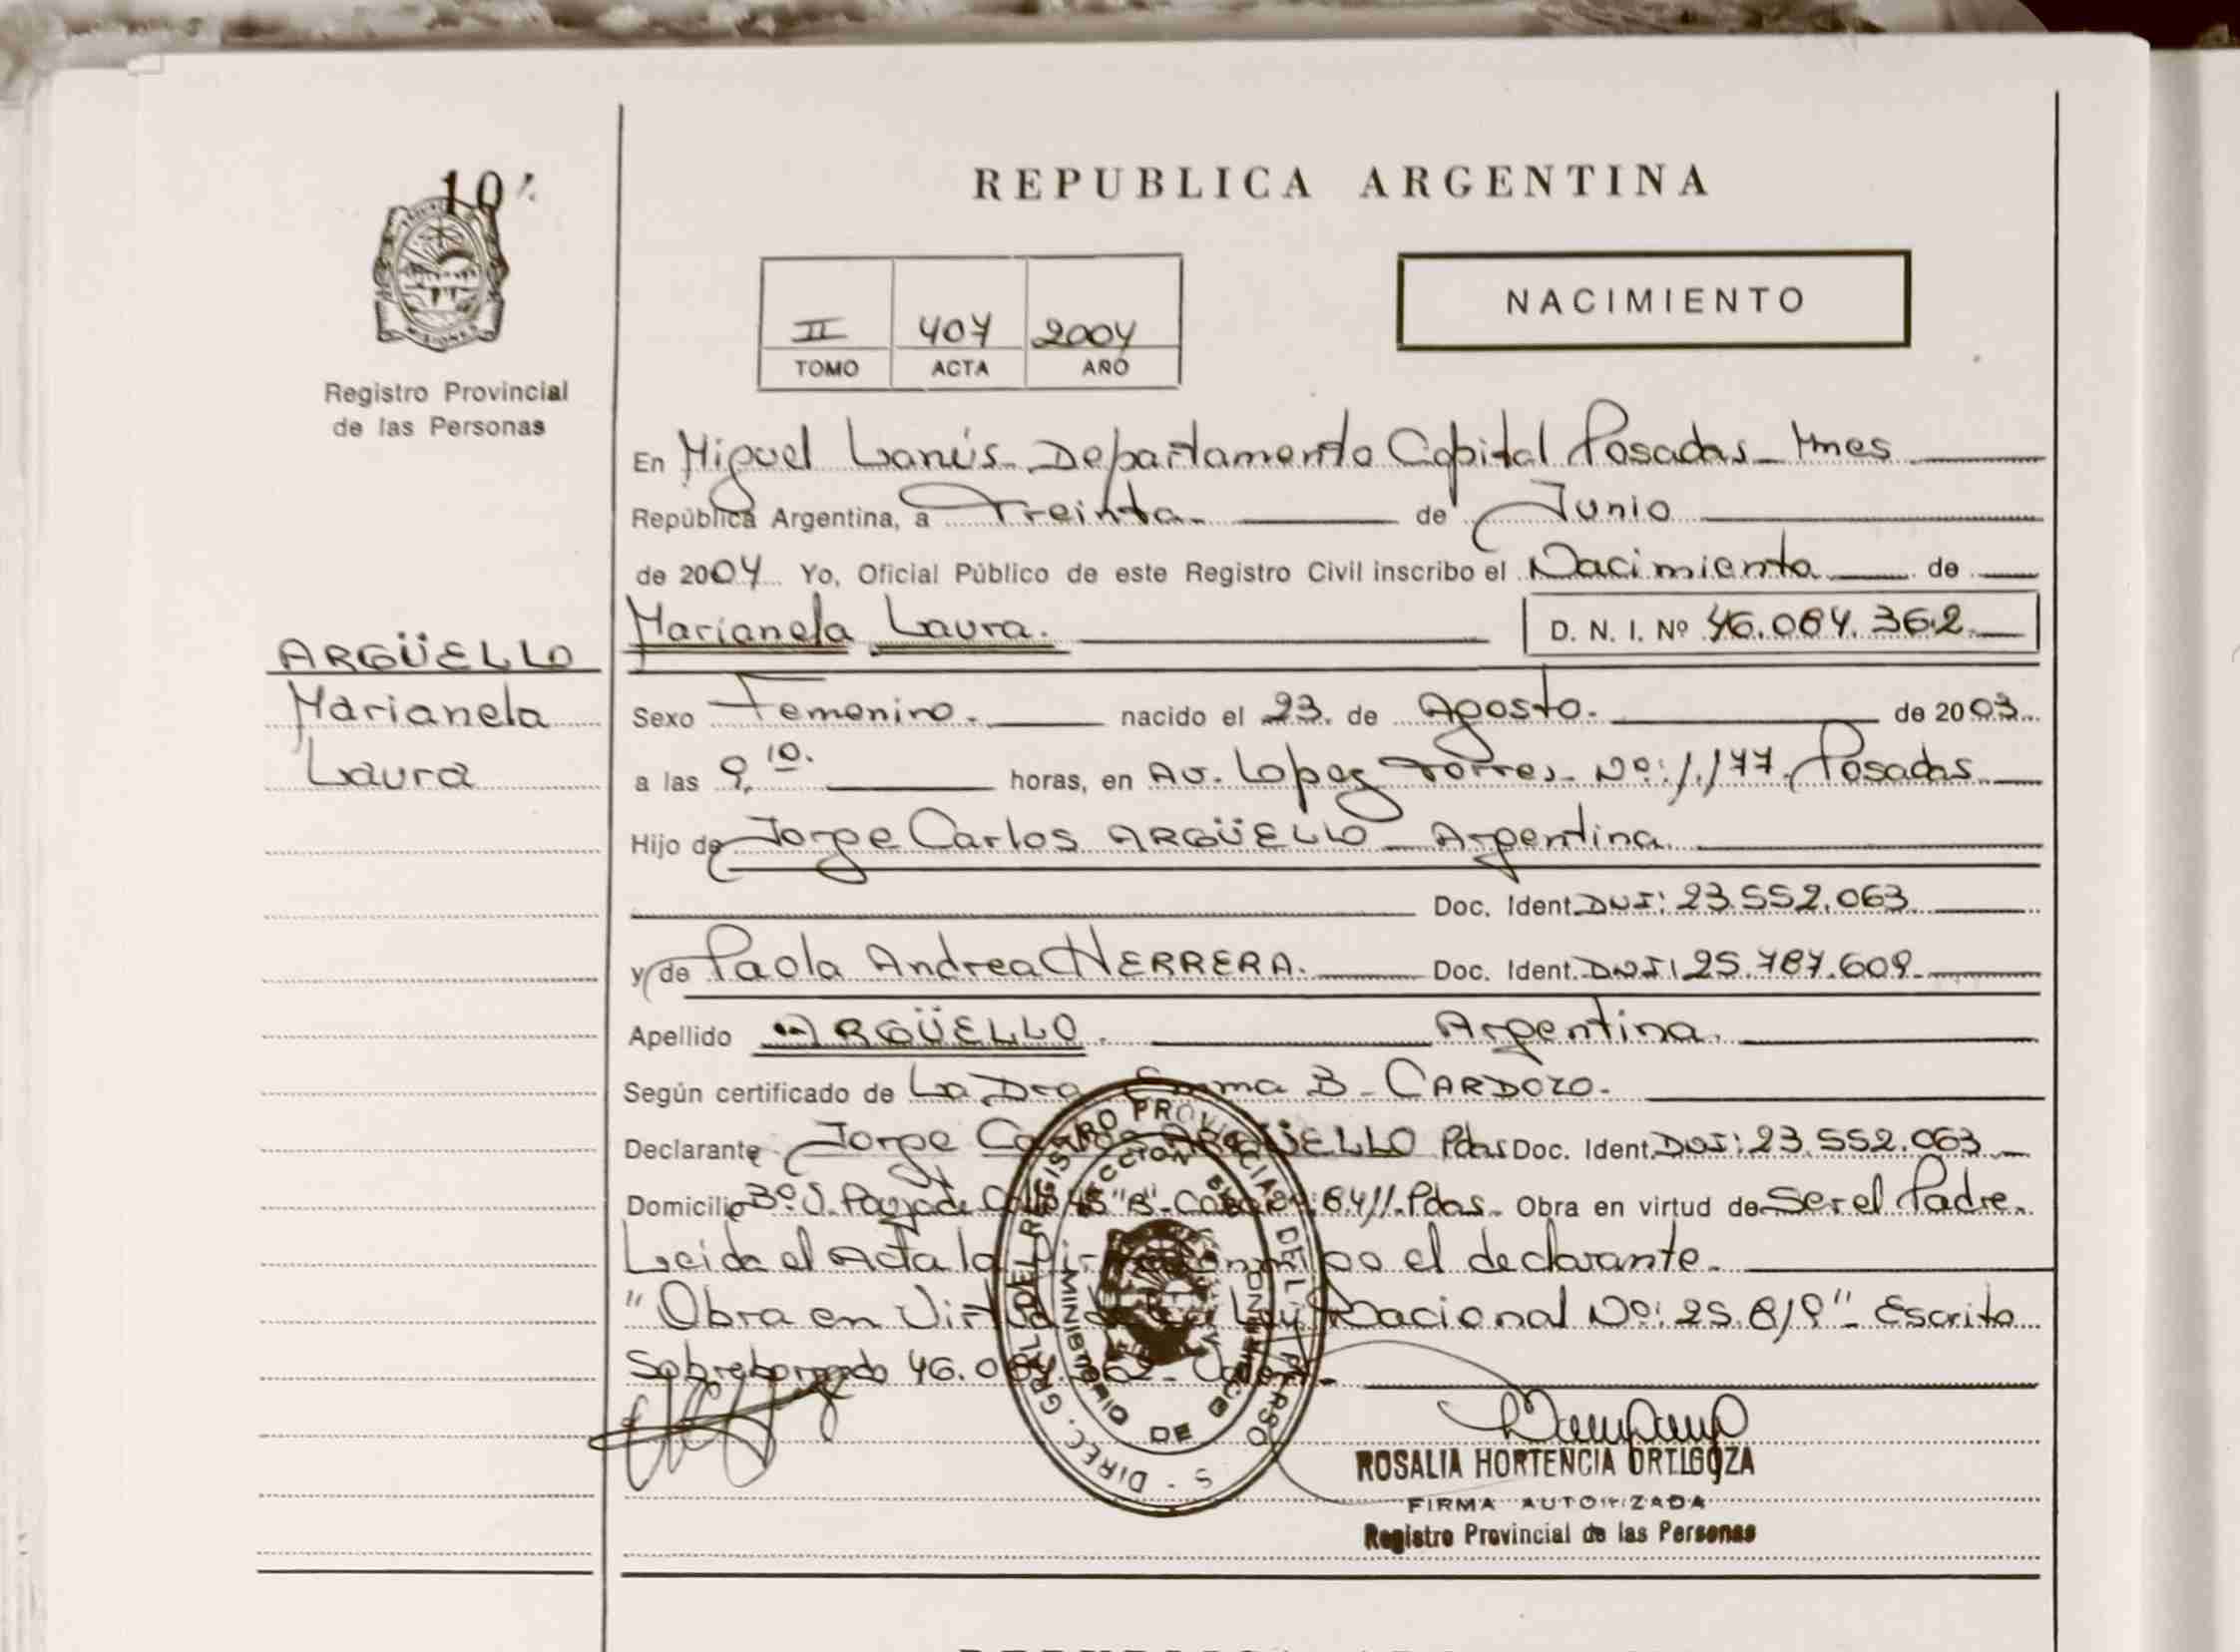 REPUBLICA ARGENTINA
NACIMIENTO
II 407 2004
TOMO ACTA AÑO
Registro Provincial
de las Personas
En Miguel Lanús - Departamento Capital Posadas - Mnes
República Argentina, a Treinta de Junio
de 2004 Yo, Oficial Público de este Registro Civil inscribo el Nacimiento de
Marianela Laura. D. N. I. Nº 46.084.362
ARGÜELLO
Marianela
Laura
Sexo Femenino. nacido el 23 de Agosto. de 2003
a las 9,10. horas, en Av. Lopez Torres Nº: 1.177 Posadas
Hijo de Jorge Carlos ARGÜELLO - Argentina
Doc. Ident. DNI: 23.552.063
y de Paola Andrea HERRERA. Doc. Ident. DNI: 25.787.609
Apellido ARGÜELLO. Argentina.
Según certificado de La Dra Emma B - CARDOZO.
Declarante Jorge Carlos ARGÜELLO Pdas Doc. Ident. DNI: 23.552.063
Domicilio Bº "B" Pdas - Obra en virtud de Ser el Padre.
Leida el Acta la conmigo el declarante.
"Obra en Virtud de la Ley Nacional Nº: 25.819" - Escrito
Sobreborrado 46.084.362 -
DIREC. GRAL. DEL REGISTRO PROVINCIAL DE L PERSO S
MINISTERIO DE
ROSALIA HORTENCIA ORTIGOZA
FIRMA AUTORIZADA
Registro Provincial de las Personas